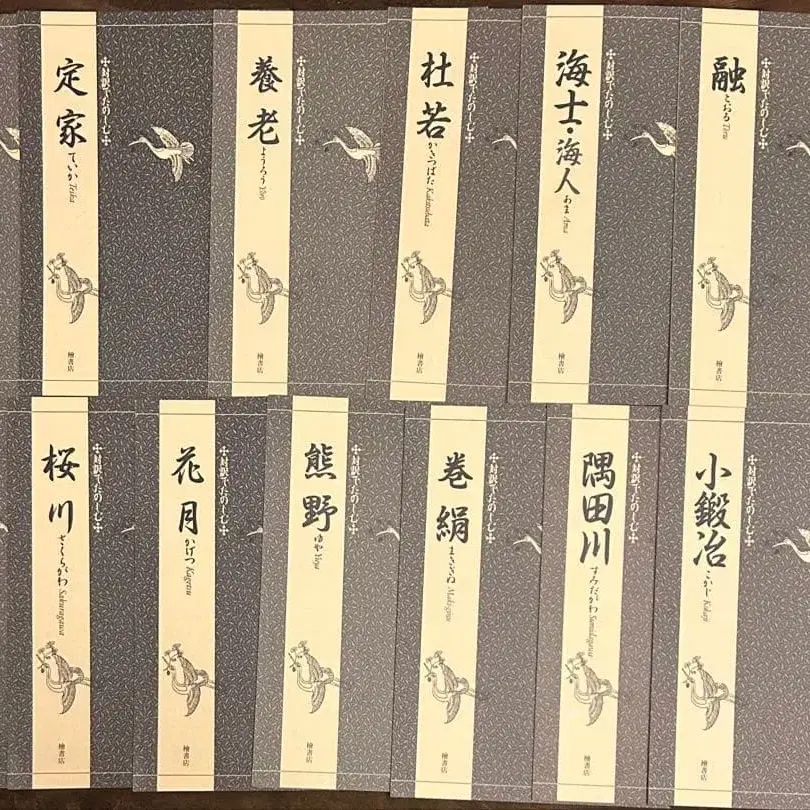 定家 ていか Teika
対訳でたのしむ
檜書店
養老 ようろう Yōrō
対訳でたのしむ
檜書店
杜若 かきつばた Kakitsubata
対訳でたのしむ
檜書店
海士・海人 あま Ama
対訳でたのしむ
檜書店
融 とおる Tōru
対訳でたのしむ
檜書店
桜川 さくらがわ Sakuragawa
対訳でたのしむ
檜書店
花月 かげつ Kagetsu
対訳でたのしむ
檜書店
熊野 ゆや Yuya
対訳でたのしむ
檜書店
巻絹 まきぎぬ Makiginu
対訳でたのしむ
檜書店
隅田川 すみだがわ Sumidagawa
対訳でたのしむ
檜書店
小鍛冶 こかじ Kokaji
対訳でたのしむ
檜書店